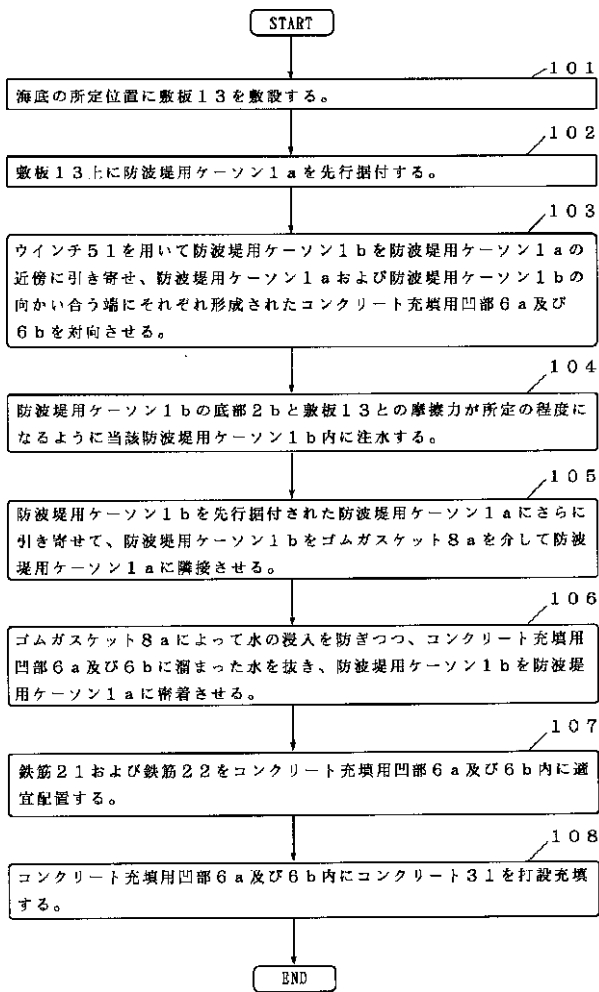 START
101
海底の所定位置に敷板13を敷設する。
102
敷板13上に防波堤用ケーソン1aを先行据付する。
103
ウインチ51を用いて防波堤用ケーソン1bを防波堤用ケーソン1aの
近傍に引き寄せ、防波堤用ケーソン1aおよび防波堤用ケーソン1bの
向かい合う端にそれぞれ形成されたコンクリート充填用凹部6a及び
6bを対向させる。
104
防波堤用ケーソン1bの底部2bと敷板13との摩擦力が所定の程度に
なるように当該防波堤用ケーソン1b内に注水する。
105
防波堤用ケーソン1bを先行据付された防波堤用ケーソン1aにさらに
引き寄せて、防波堤用ケーソン1bをゴムガスケット8aを介して防波
堤用ケーソン1aに隣接させる。
106
ゴムガスケット8aによって水の浸入を防ぎつつ、コンクリート充填用
凹部6a及び6bに溜まった水を抜き、防波堤用ケーソン1bを防波堤
用ケーソン1aに密着させる。
107
鉄筋21および鉄筋22をコンクリート充填用凹部6a及び6b内に適
宜配置する。
108
コンクリート充填用凹部6a及び6b内にコンクリート31を打設充填
する。
END